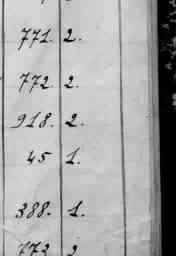 771. 2.
772. 2.
918. 2.
45 1.
388. 1.
773 2